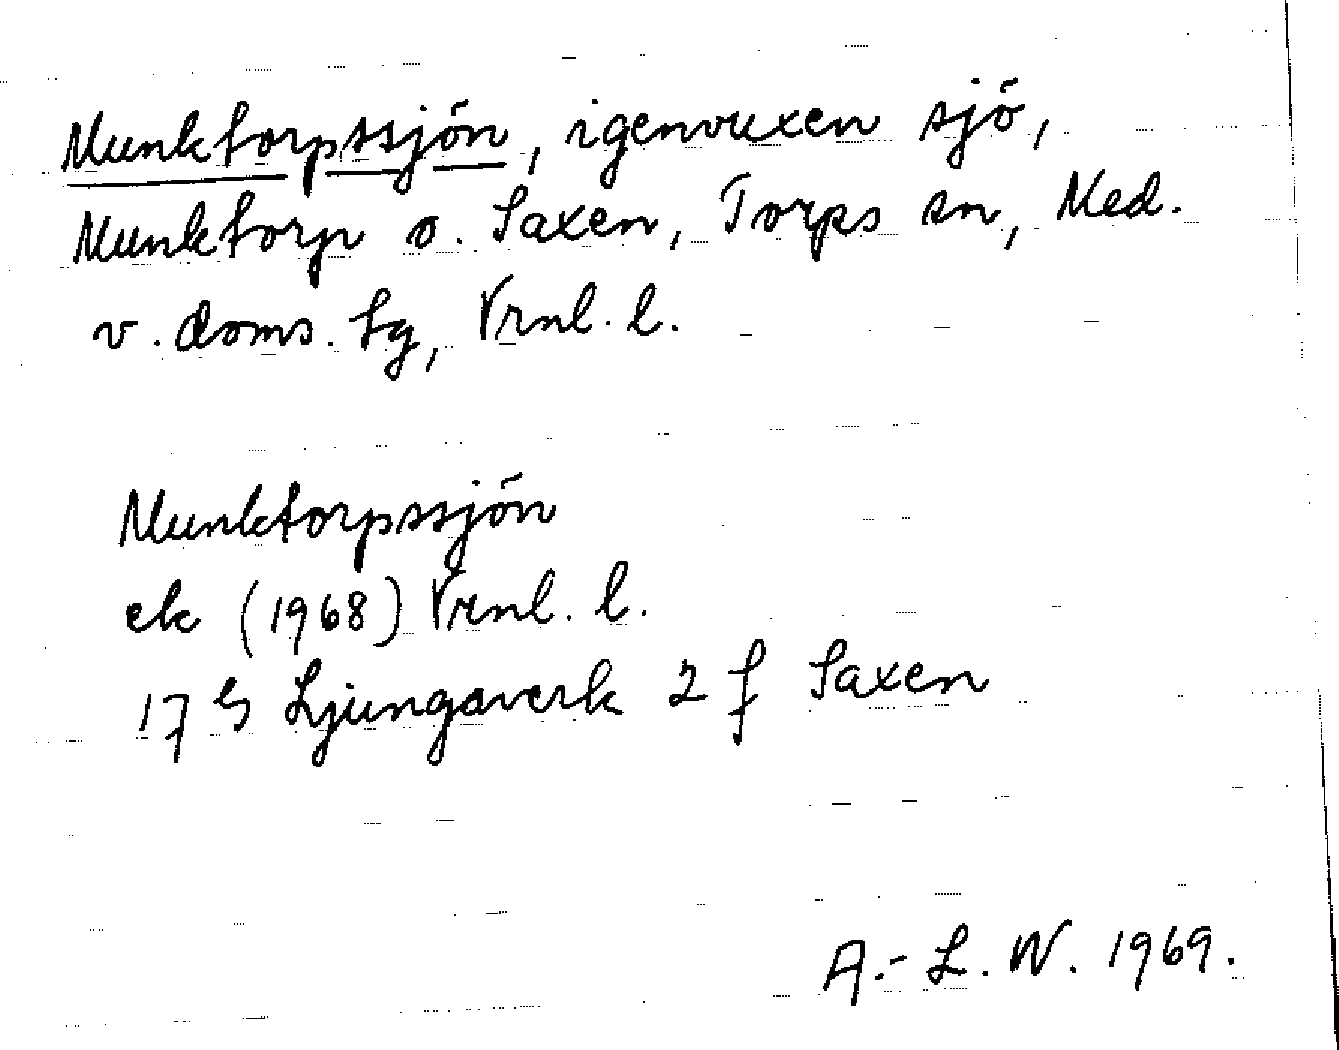 Munktorpssjön, igenvuxen sjö,
Munktorp o. Saxen, Torps sn, Med.
v. doms. tg, Vrnl. l.
Munktorpssjön
ek (1968) Vrnl. l.
17 G Ljungaverk 2 f Saxen
A.-L. W. 1969.